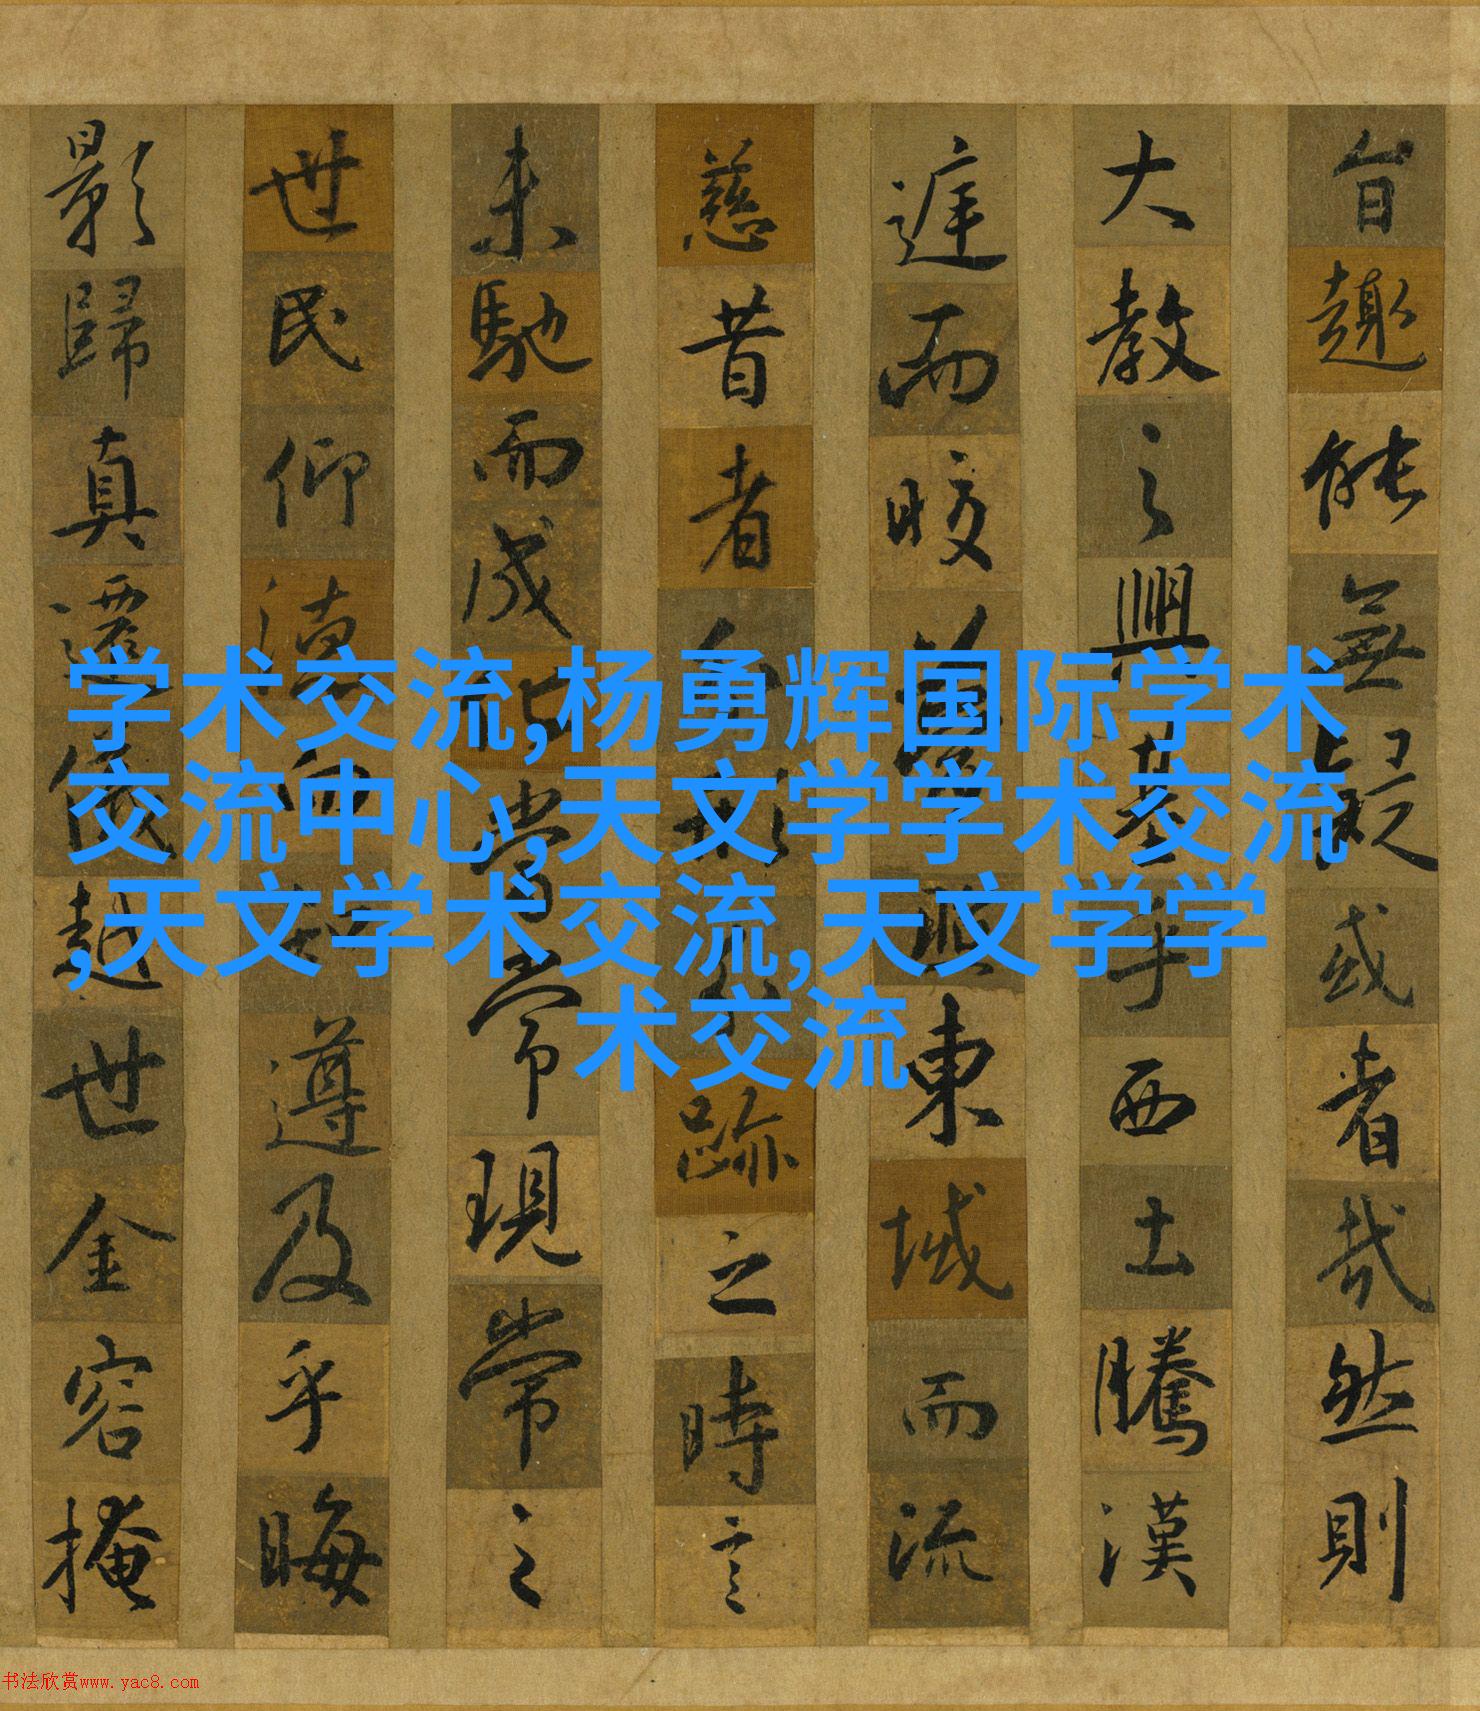 旨趣能無疑或者哉然則
大教之興基乎西土騰漢
庭而皎夢照東域而流
慈昔者分形分跡之時言
未馳而成化當常現常之
世民仰德而知遵及乎晦
影歸真遷儀越世金容掩
学术交流,杨勇辉国际学术
交流中心,天文学学术交流
,天文学术交流,天文学学
术交流
书法欣赏www.yac8.com